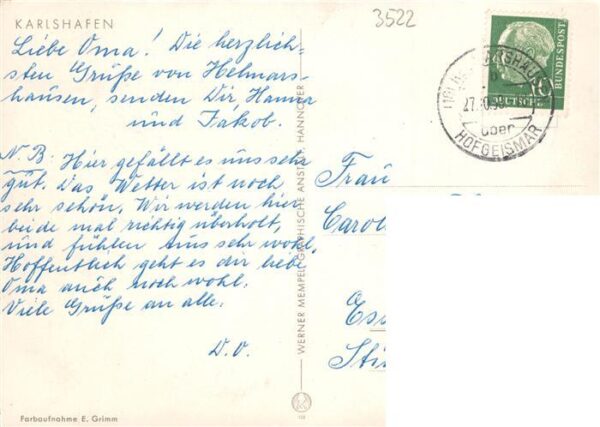 KARLSHAFEN
3522
Liebe Oma! Die herzlich-
sten Grüße von Helmars-
hausen, senden Dir, Hanna
und Jakob.
N.B: Hier gefällt es uns sehr
gut. Das Wetter ist noch
sehr schön. Wir werden hier
beide mal richtig überholt,
und fühlen uns sehr wohl.
Hoffentlich geht es dir liebe
Oma auch noch wohl.
Viele Grüße an alle.
D.O.
Farbaufnahme E. Grimm
WERNER MEMPEL GRAPHISCHE ANSTALT, HANNOVER
DEUTSCHE
BUNDESPOST
10
über
HOFGEISMAR
Frau
Carol